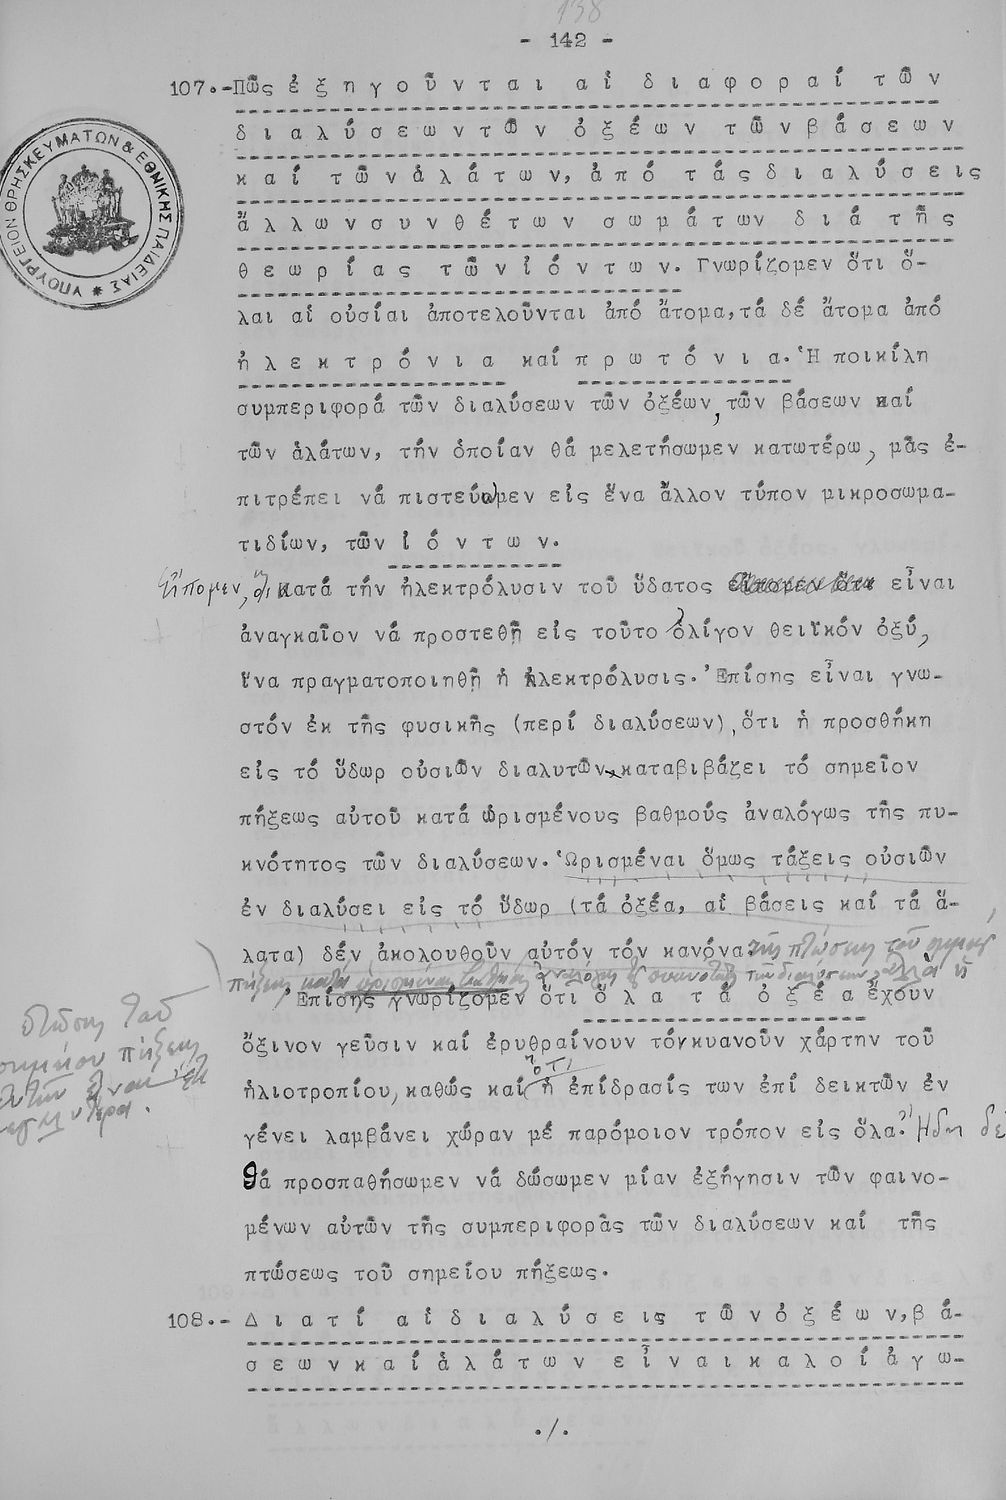 138
- 142 -
107.-Πῶς ἐξηγοῦνται αἱ διαφοραί τῶν
διαλύσεων τῶν ὀξέων τῶν βάσεων
καί τῶν ἁλάτων, ἀπό τάς διαλύσεις
ἄλλων συνθέτων σωμάτων διά τῆς
θεωρίας τῶν ἰόντων. Γνωρίζομεν ὅτι ὅ-
λαι αἱ οὐσίαι ἀποτελοῦνται ἀπό ἄτομα, τά δέ ἄτομα ἀπό
ἠλεκτρόνια καί πρωτόνια. Ἡ ποικίλη
συμπεριφορά τῶν διαλύσεων τῶν ὀξέων, τῶν βάσεων καί
τῶν ἁλάτων, τήν ὁποίαν θά μελετήσωμεν κατωτέρω, μᾶς ἐ-
πιτρέπει νά πιστεύωμεν εἰς ἕνα ἄλλον τύπον μικροσωμα-
τιδίων, τῶν ἰόντων.
Εἴπομεν, ὅτι κατά τήν ἠλεκτρόλυσιν τοῦ ὕδατος εἴπομεν ὅτι εἶναι
ἀναγκαῖον νά προστεθῇ εἰς τοῦτο ὀλίγον θειϊκόν ὀξύ,
ἵνα πραγματοποιηθῇ ἡ ἠλεκτρόλυσις. Ἐπίσης εἶναι γνω-
στόν ἐκ τῆς φυσικῆς (περί διαλύσεων), ὅτι ἡ προσθήκη
εἰς τό ὕδωρ οὐσιῶν διαλυτῶν καταβιβάζει τό σημεῖον
πήξεως αὐτοῦ κατά ὡρισμένους βαθμούς ἀναλόγως τῆς πυ-
κνότητος τῶν διαλύσεων. Ὡρισμέναι ὅμως τάξεις οὐσιῶν
ἐν διαλύσει εἰς τό ὕδωρ (τά ὀξέα, αἱ βάσεις καί τά ἅ-
λατα) δέν ἀκολουθοῦν αὐτόν τόν κανόνα τῆς πτώσεως τοῦ σημείου
πήξεως κατά ὡρισμένους βαθμούς ἀναλόγως τῆς πυκνότητος τῶν διαλύσεων, ἀλλά ἡ
πτῶσις τοῦ
σημείου πήξεως
αὐτῶν εἶναι
μεγαλυτέρα.
Ἐπίσης γνωρίζομεν ὅτι ὅλα τά ὀξέα ἔχουν
ὄξινον γεῦσιν καί ἐρυθραίνουν τόν κυανοῦν χάρτην τοῦ
ἡλιοτροπίου, καθώς καί ὅτι ἡ ἐπίδρασίς των ἐπί δεικτῶν ἐν
γένει λαμβάνει χώραν μέ παρόμοιον τρόπον εἰς ὅλα. Ἤδη δέ
θά προσπαθήσωμεν νά δώσωμεν μίαν ἐξήγησιν τῶν φαινο-
μένων αὐτῶν τῆς συμπεριφορᾶς τῶν διαλύσεων καί τῆς
πτώσεως τοῦ σημείου πήξεως.
108.- Διατί αἱ διαλύσεις τῶν ὀξέων, βά-
σεων καί ἁλάτων εἶναι καλοί ἀγω-
./.
ΥΠΟΥΡΓΕΙΟΝ ΘΡΗΣΚΕΥΜΑΤΩΝ & ΕΘΝΙΚΗΣ ΠΑΙΔΕΙΑΣ